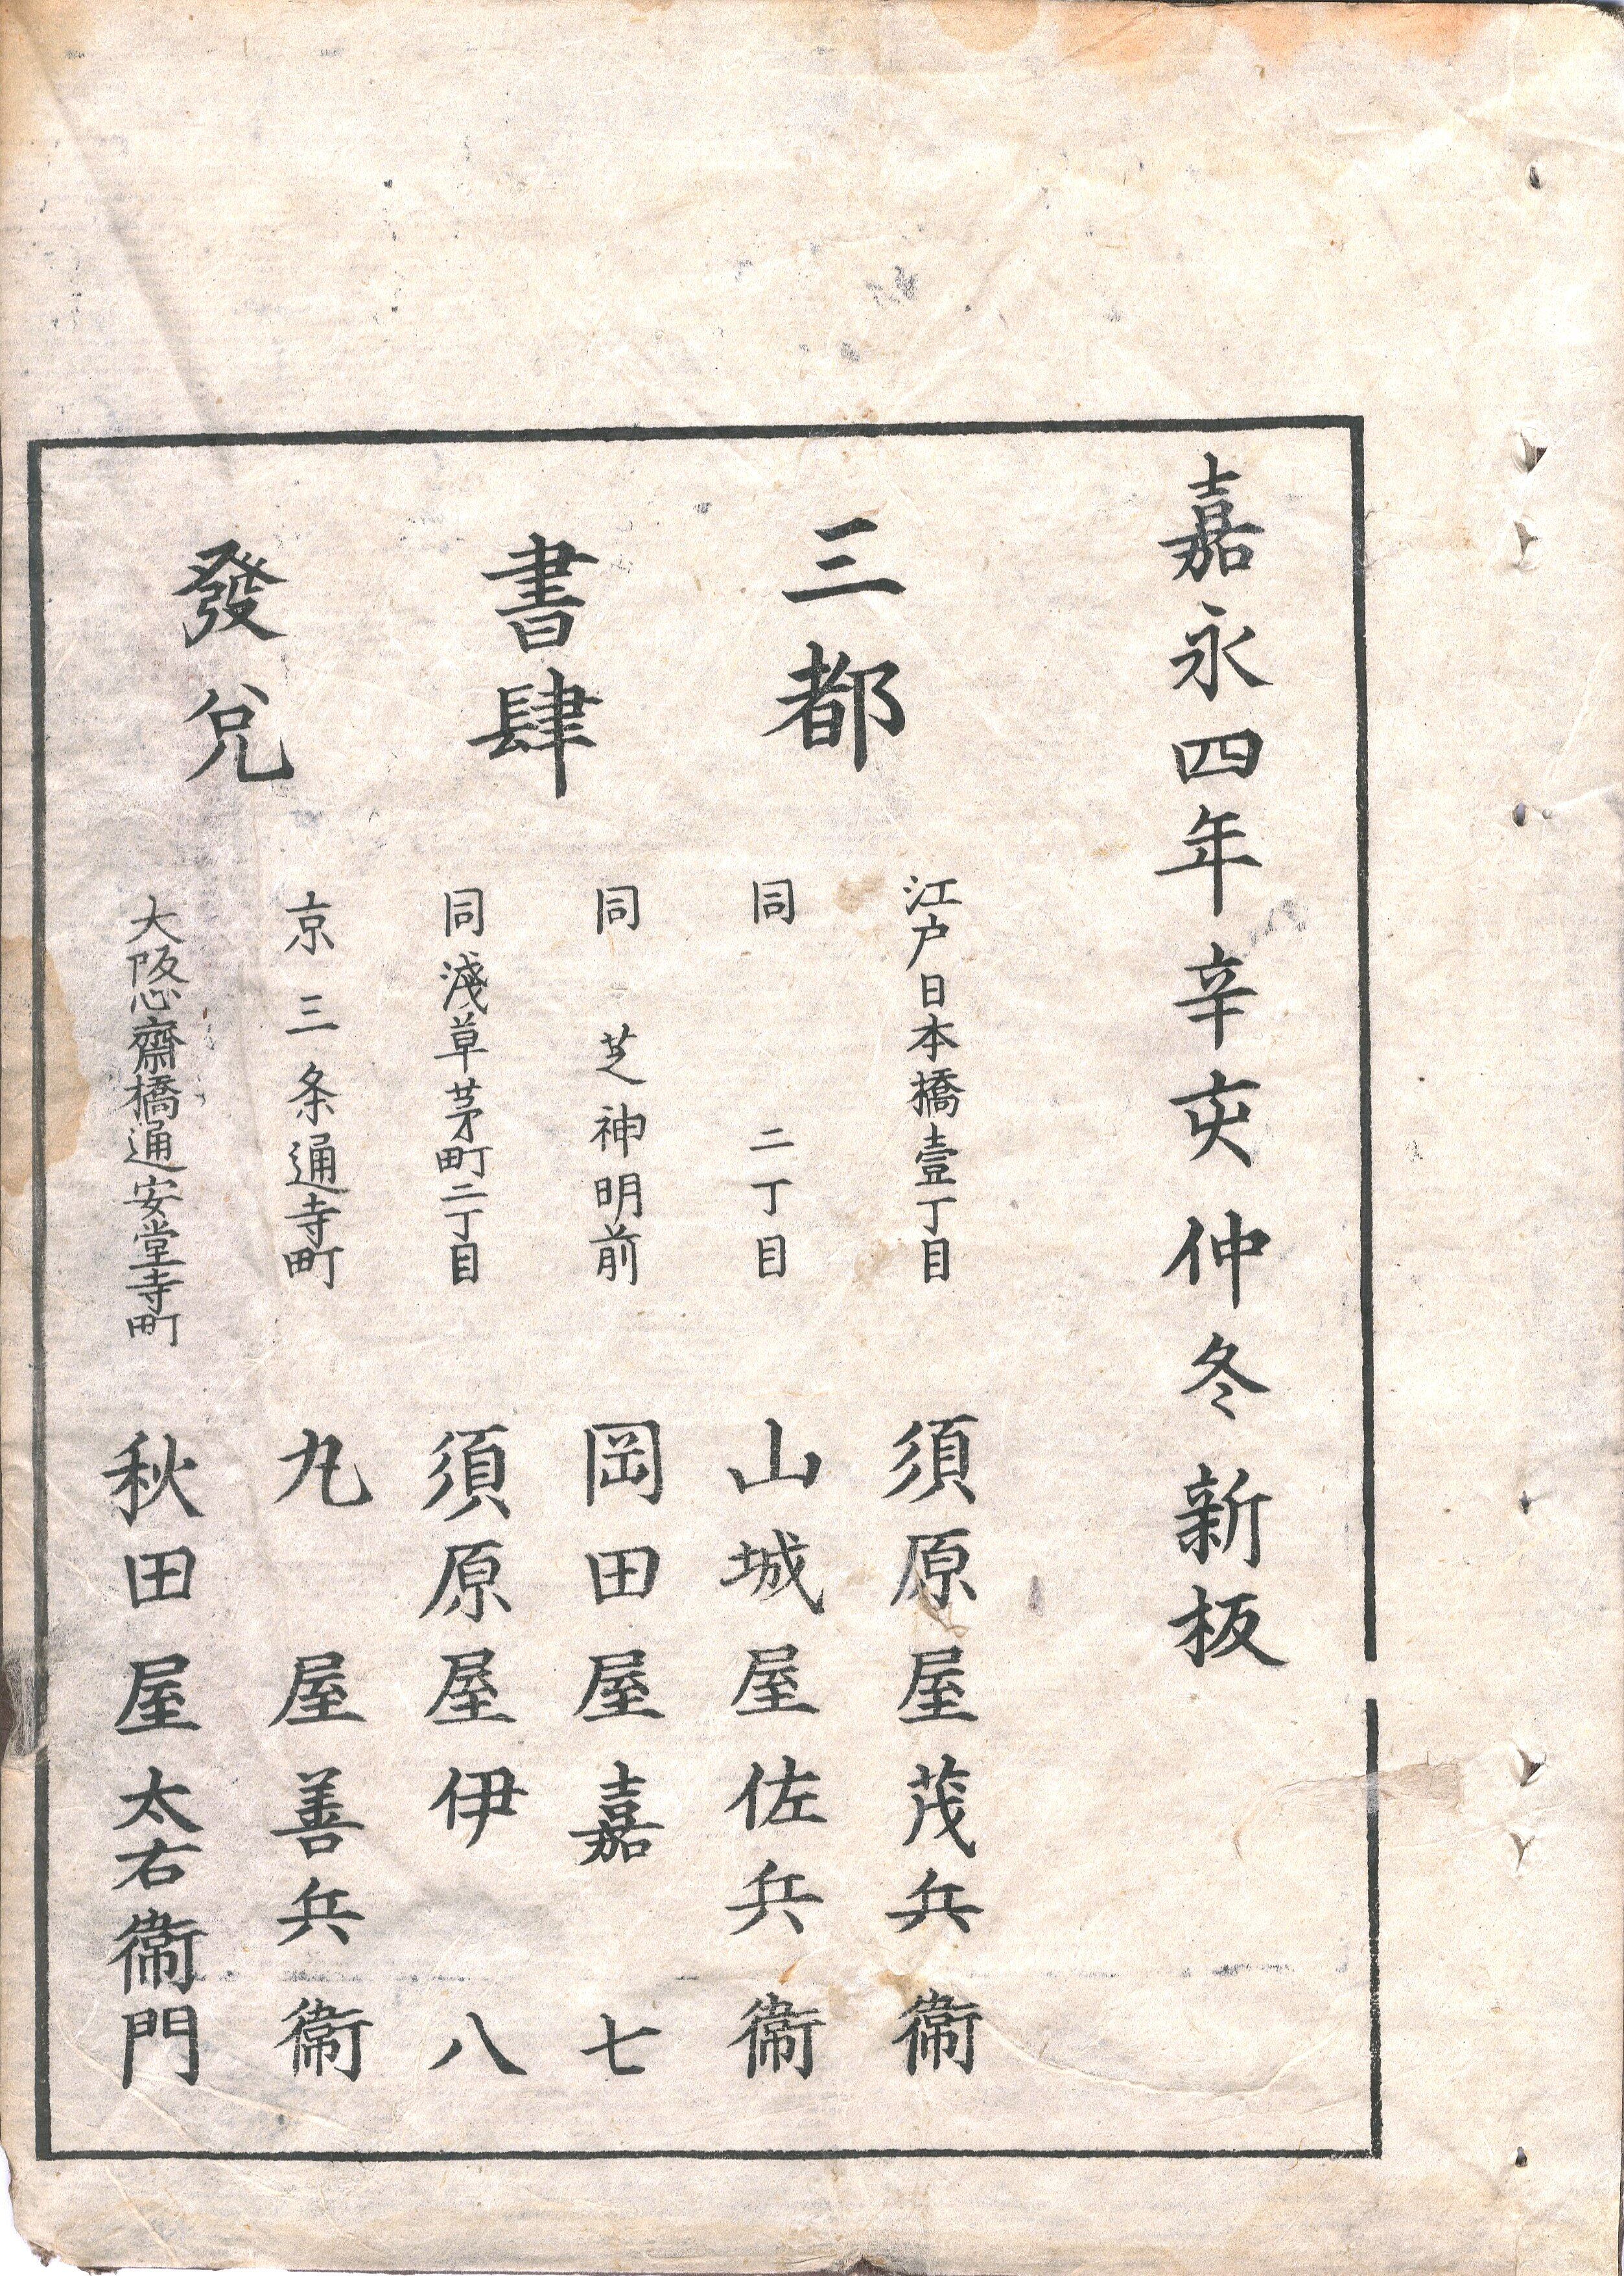 嘉永四年辛亥仲冬新板
三都
書肆
發兌
江戸日本橋壹丁目 須原屋茂兵衞
同 二丁目 山城屋佐兵衞
同 芝神明前 岡田屋嘉七
同淺草茅町二丁目 須原屋伊八
京三条通寺町 丸屋善兵衞
大阪心齋橋通安堂寺町 秋田屋太右衞門